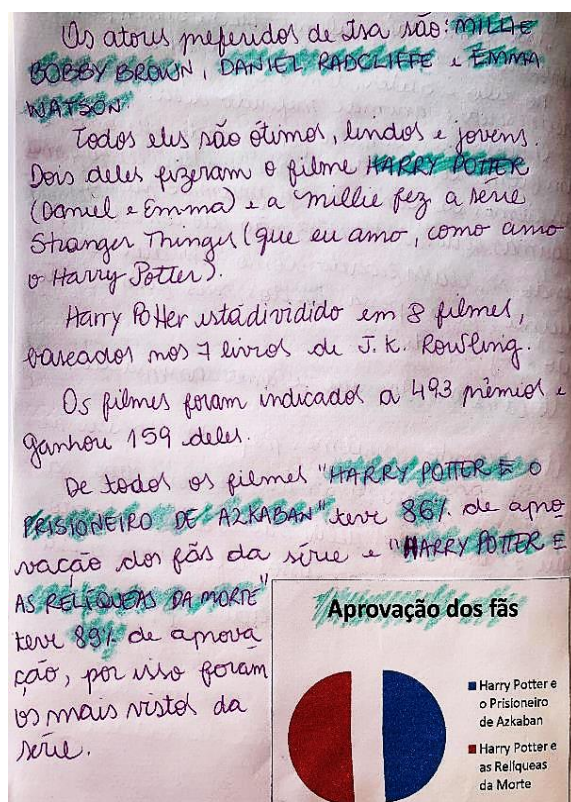 Os atores preferidos de Isa são: MILLIE
BOBBY BROWN, DANIEL RADCLIFFE e EMMA
WATSON.
Todos eles são ótimos, lindos e jovens.
Dois deles fizeram o filme HARRY POTTER
(Daniel e Emma) e a Millie fez a série
Stranger Things (que eu amo, como amo
o Harry Potter).
Harry Potter está dividido em 8 filmes,
baseados nos 7 livros de J.K. Rowling.
Os filmes foram indicados a 493 prêmios e
ganhou 159 deles.
De todos os filmes "HARRY POTTER E O
PRISIONEIRO DE AZKABAN" teve 86% de apro
vação dos fãs da série e "HARRY POTTER E
AS RELÍQUEAS DA MORTE"
teve 89% de aprova
ção, por isso foram
os mais vistos da
série.
Aprovação dos fãs
Harry Potter e
o Prisioneiro
de Azkaban
Harry Potter e
as Relíqueas
da Morte